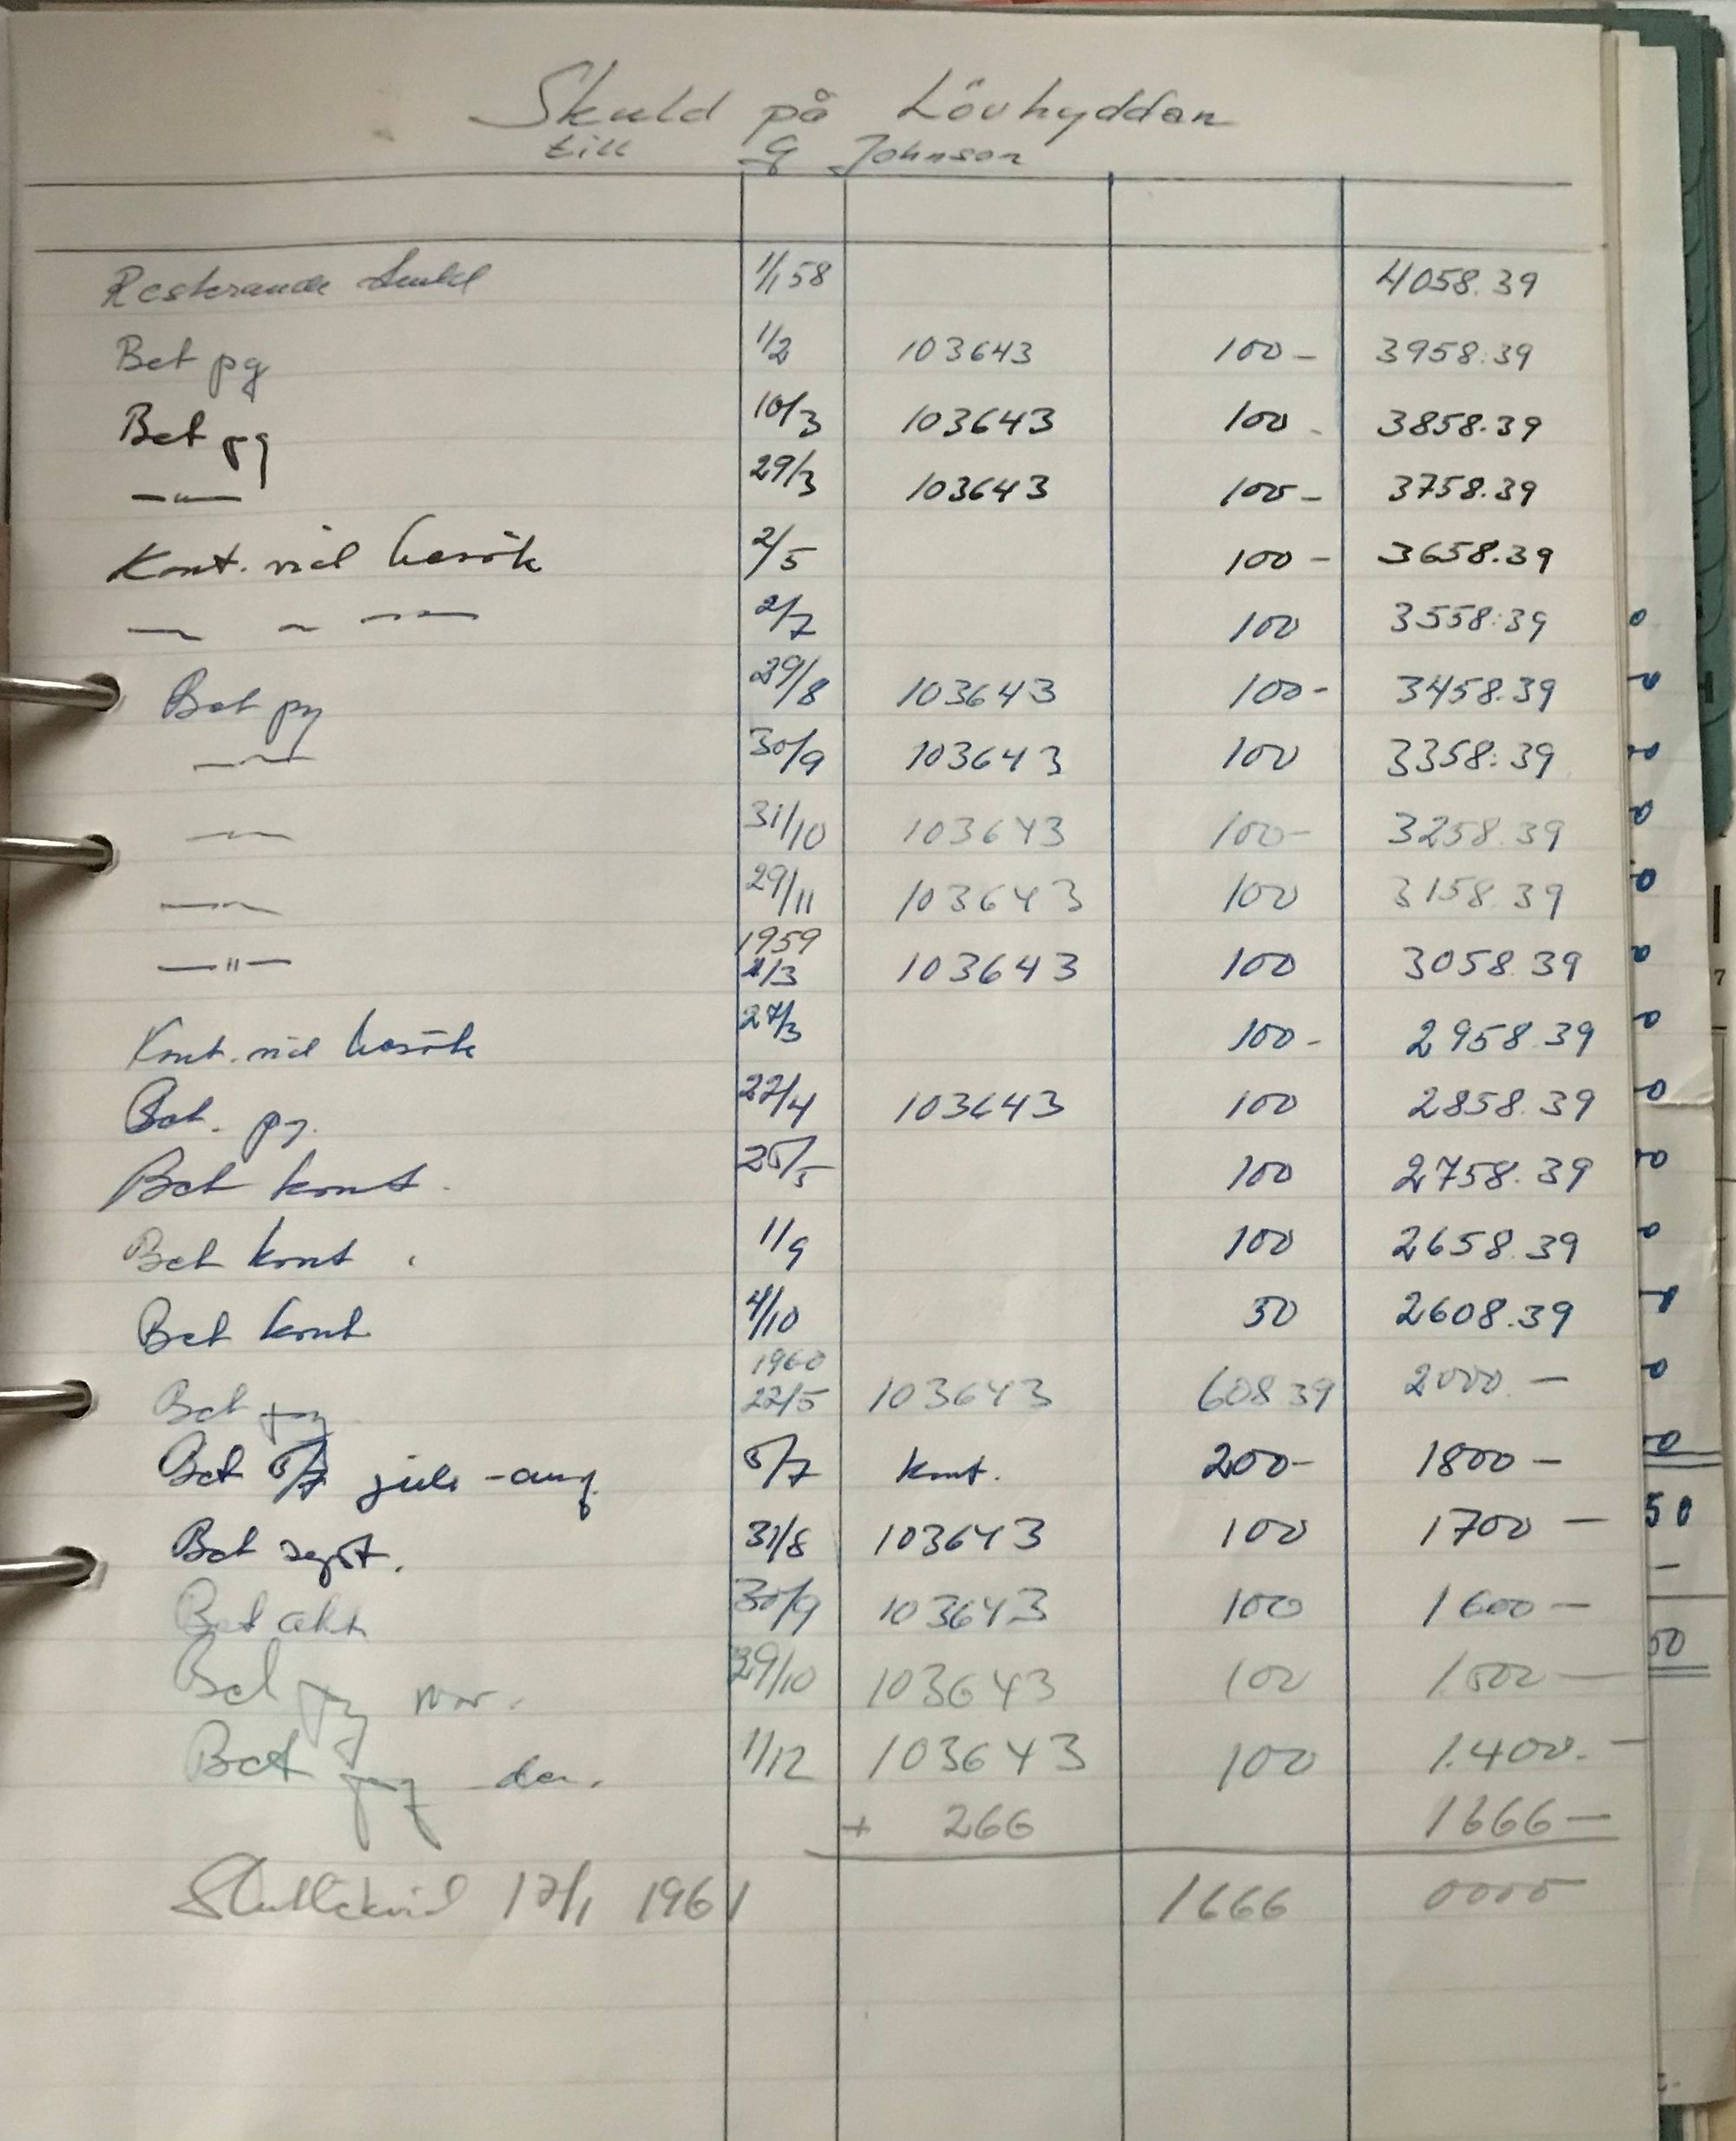 Skuld på Lövhyddan
till G Johnson
Resterande skuld 1/1 58 4058.39
Bet pg 1/2 103643 100 – 3958.39
Bet pg 10/3 103643 100 – 3858.39
—"— 29/3 103643 100 – 3758.39
Kont. vid besök 2/5 100 – 3658.39
— " — 2/7 100 3558.39
Bet pg 29/8 103643 100 - 3458.39
—"— 30/9 103643 100 3358.39
—"— 31/10 103643 100 – 3258.39
—"— 29/11 103643 100 3158.39
1959
—"— 2/3 103643 100 3058.39
Kont. vid besök 27/3 100 - 2958.39
Bet. pg. 22/4 103643 100 2858.39
Bet kont. 25/5 100 2758.39
Bet kont. 1/9 100 2658.39
Bet kont 4/10 50 2608.39
1960
Bet pg 22/5 103643 608 39 2000. –
Bet 5/7 juli - aug. 5/7 kont. 200 - 1800 –
Bet sept. 31/8 103643 100 1700 –
Bet okt 30/9 103643 100 1600 –
Bet pg nov. 29/10 103643 100 1.500 –
Bet pg dec. 1/12 103643 100 1.400. –
+ 266 1666 –
Slutlikvid 17/1 1961 1666 0000
50
50
7